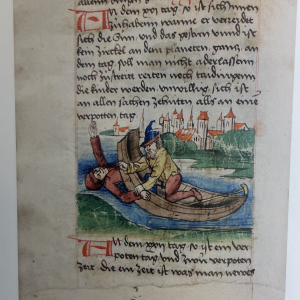 An dem xvj tag so ist sich nimen
zuhaben wanne er verzeicht
sich die Sun, und das gestirn und ist
kein zirckel an den planeten gang, an
dem tag soll man nicht aderlassen
noch zustreit reiten noch taidingen
die kinder werden unwillig, sich ist
an allen sachen zehuten alls an eine
verpotten tag
An dem xvij tag so ist ein ver
poten tag und zwu verpoten
zeit die ein zeit ist was man newes